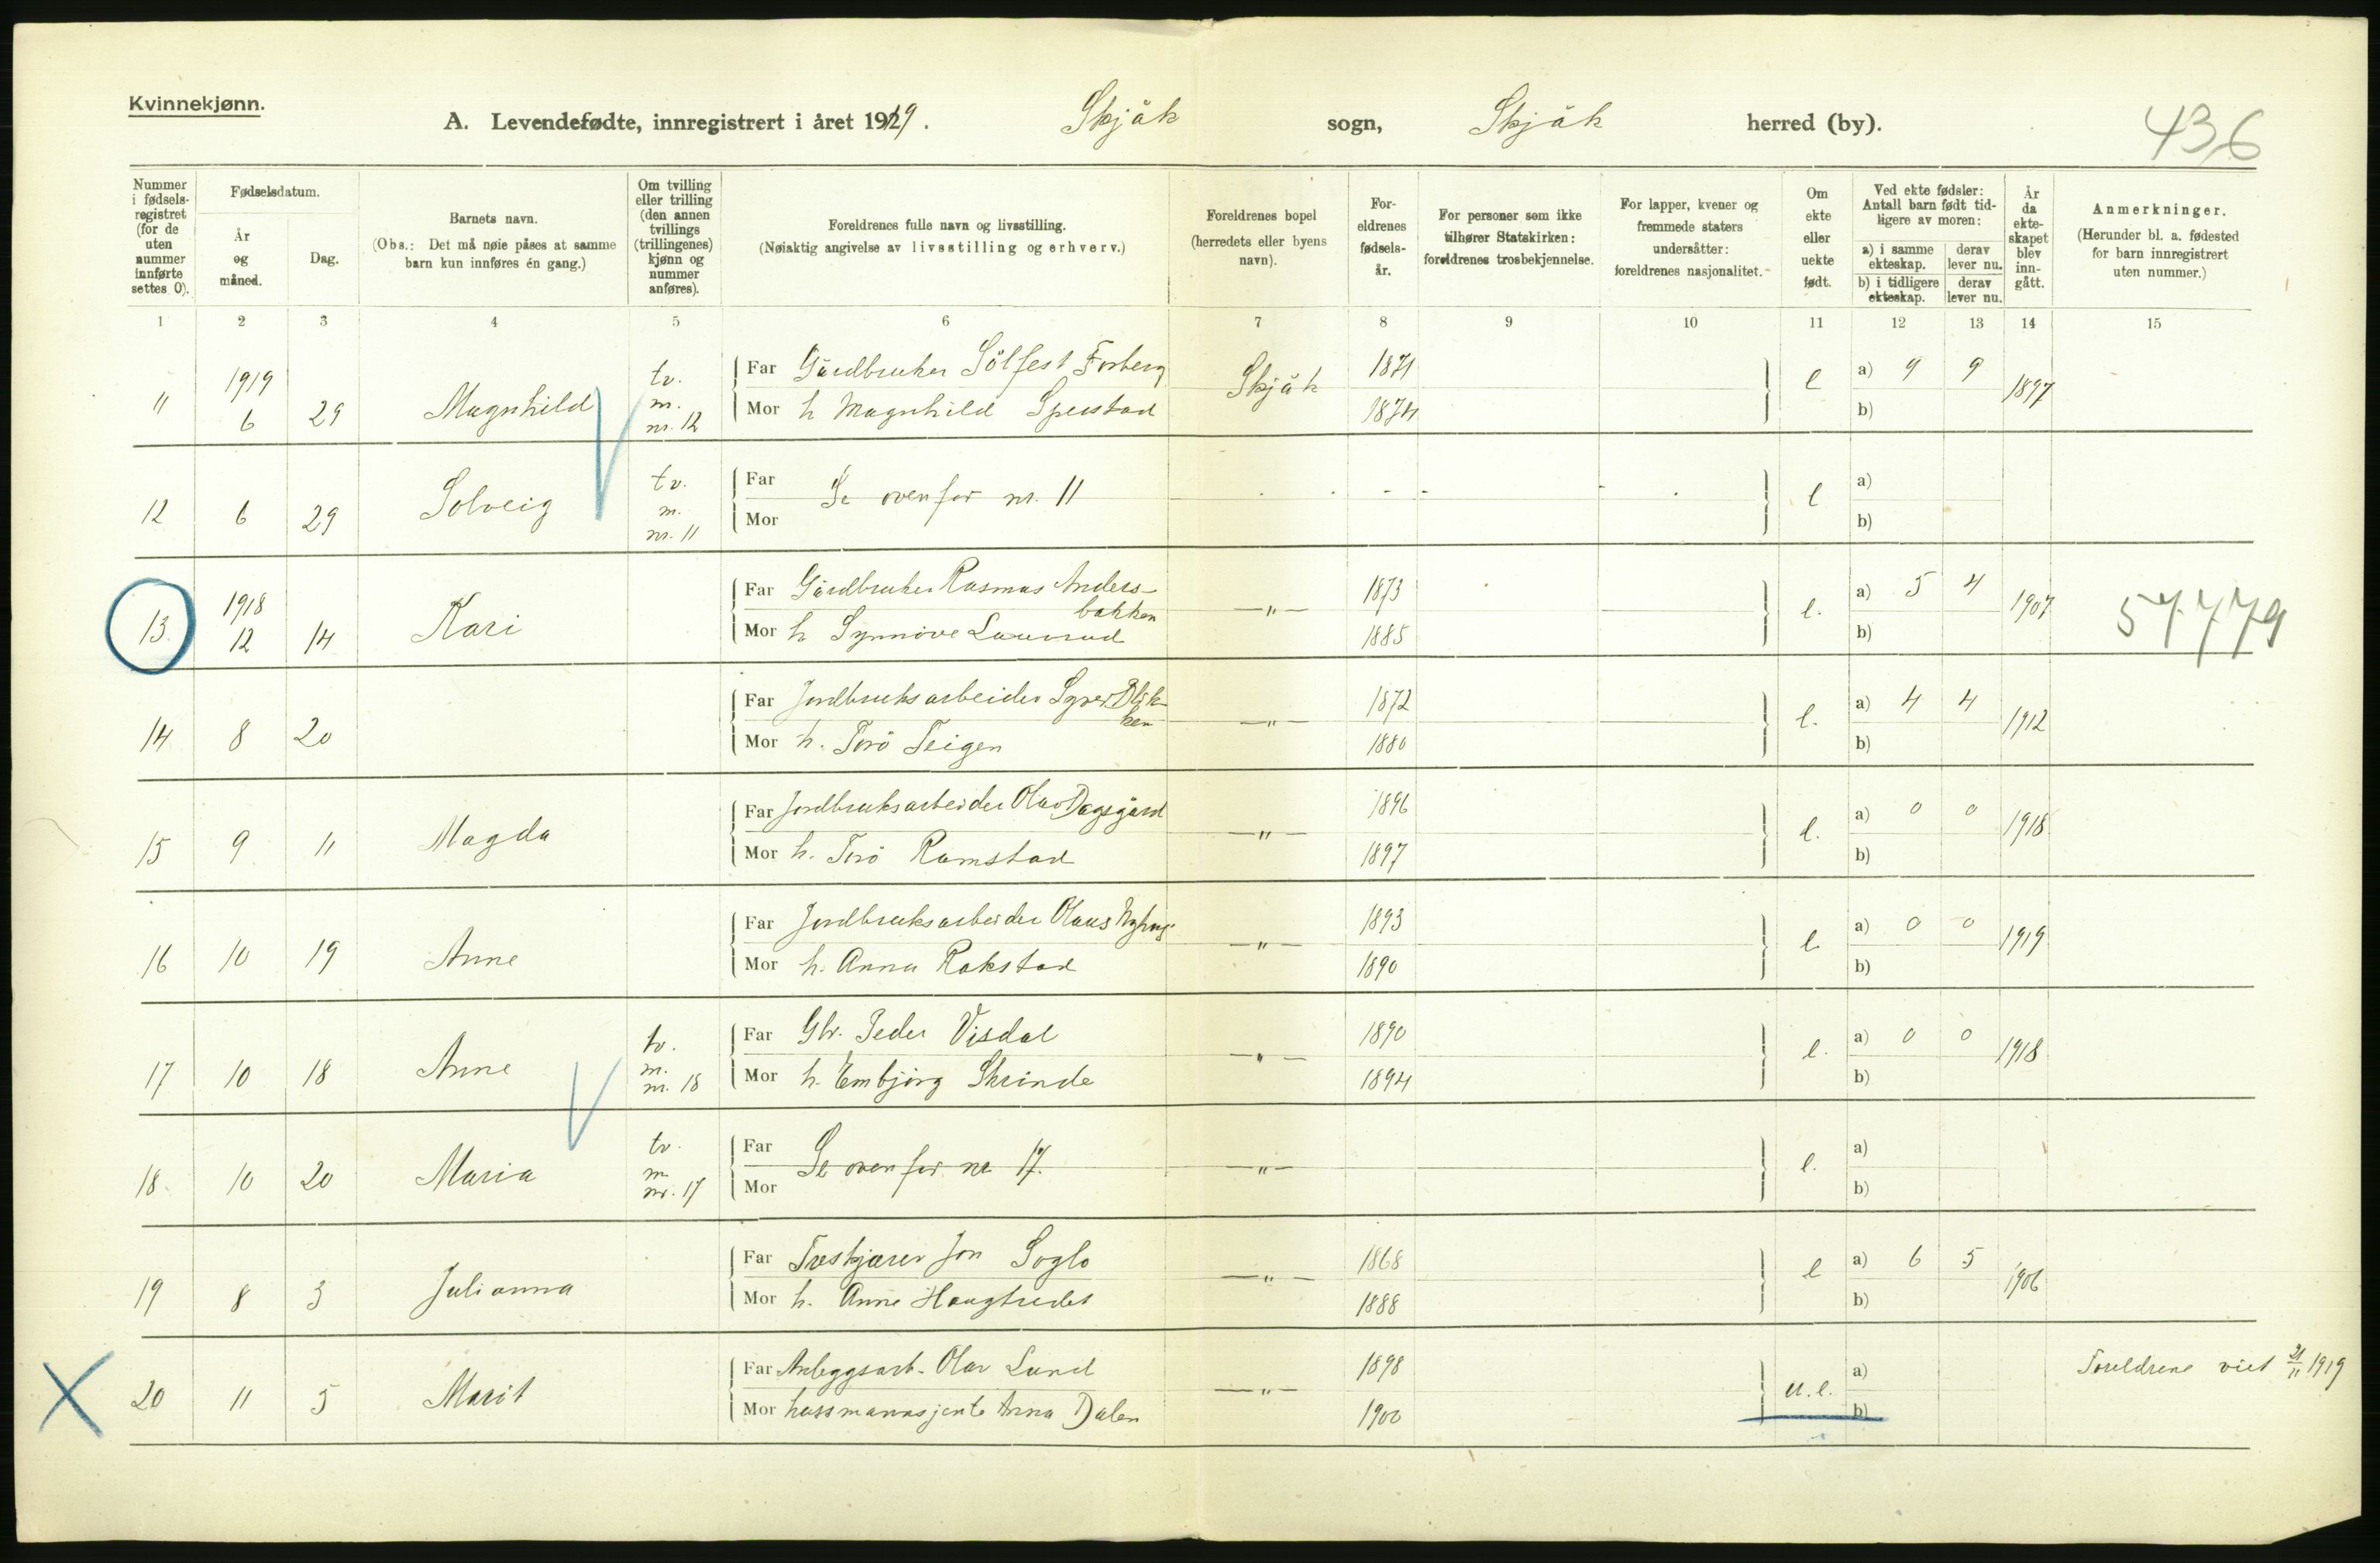 Kvinnekjønn.
A. Levendefødte, innregistrert i året 1919. Skjåk sogn, Skjåk herred (by).
436
Nummer i fødsels-registret (for de uten nummer innførte settes 0).
Fødselsdatum.
År og måned.
Dag.
Barnets navn.
(Obs.: Det må nøie påses at samme barn kun innføres én gang.)
Om tvilling eller trilling (den annen tvillings (trillingenes) kjønn og nummer anføres).
Foreldrenes fulle navn og livsstilling.
(Nøiaktig angivelse av livsstilling og erhverv.)
Foreldrenes bopel (herredets eller byens navn).
For-eldrenes fødsels-år.
For personer som ikke tilhører Statskirken: foreldrenes trosbekjennelse.
For lapper, kvener og fremmede staters undersåtter: foreldrenes nasjonalitet.
Om ekte eller uekte født.
Ved ekte fødsler: Antall barn født tid-ligere av moren:
a) i samme ekteskap.
derav lever nu.
b) i tidligere ekteskap.
derav lever nu.
År da ekte-skapet blev inn-gått.
Anmerkninger.
(Herunder bl. a. fødested for barn innregistrert uten nummer.)
1 2 3 4 5 6 7 8 9 10 11 12 13 14 15
1919 tv. Far Gårdbruker Sölfest Forberg Skjåk 1871 e a) 9 9 1897
11 6 29 Magnhild m. nr. 12 Mor h Magnhild 1874 b)
tv. Far Se ovenfor nr. 11 e a)
12 6 29 Solveig m. nr. 11 Mor b)
1918 Far Gårdbruker Rasmus Anders-bakken 1873 e. a) 5 4 1907 57779
13 12 14 Kari Mor h Synnöve 1885 b)
Far Jordbruksarbeider Syver 1872 e. a) 4 4 1912
14 8 20 Mor h. Torö Teigen 1880 b)
Far Jordbruksarbeider Olav Dagsgård 1896 e. a) 0 0 1918
15 9 11 Magda Mor h. Torö Ramstad 1897 b)
Far Jordbruksarbeider Olaus 1893 e a) 0 0 1919
16 10 19 Anne Mor h. Anna Rakstad 1890 b)
tv. Far Gbr. Peder Visdal 1890 e. a) 0 0 1918
17 10 18 Anne m. nr. 18 Mor h. Embjörg Skrinde 1894 b)
tv. Far Se ovenfor nr 17. e. a)
18 10 20 Maria m nr. 17 Mor b)
Far Treskjærer Jon Soglo 1868 e a) 6 5 1906
19 8 3 Julianna Mor h. Anne 1888 b)
Far Anleggsarb. Olav Lund 1898 u.e. a) Foreldrene viet 21/11 1919
20 11 5 Marit Mor husmannsjente Anna Dalen 1900 b)